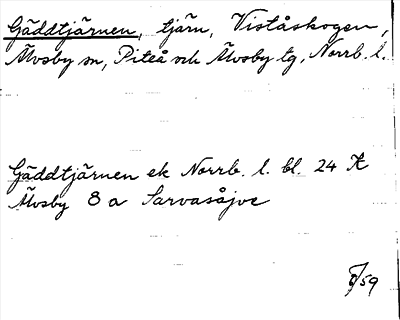 Gäddtjärnen, tjärn, Viståskogen,
Älvsby sn, Piteå och Älvsby tg, Norrb. l.
Gäddtjärnen ek Norrb. l. bl. 24 K
Älvsby 8 a Sarvasåjve
/59